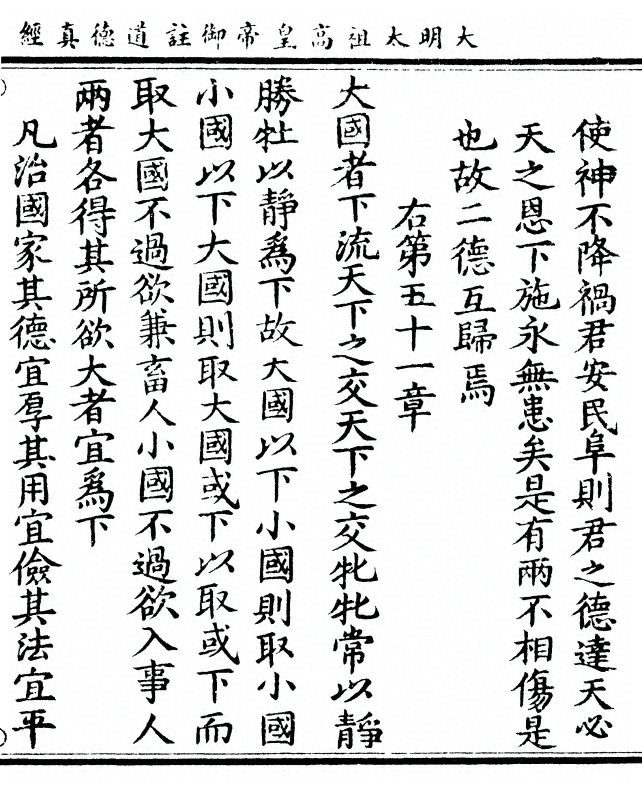 大明太祖高皇帝御註道德真經
使神不降禍君安民阜則君之德達天必
天之恩下施永無患矣是有兩不相傷是
也故二德互歸焉
右第五十一章
大國者下流天下之交天下之交牝牝常以靜
勝牡以靜爲下故大國以下小國則取小國
小國以下大國則取大國或下以取或下而
取大國不過欲兼畜人小國不過欲入事人
兩者各得其所欲大者宜爲下
凡治國家其德宜厚其用宜儉其法宜平